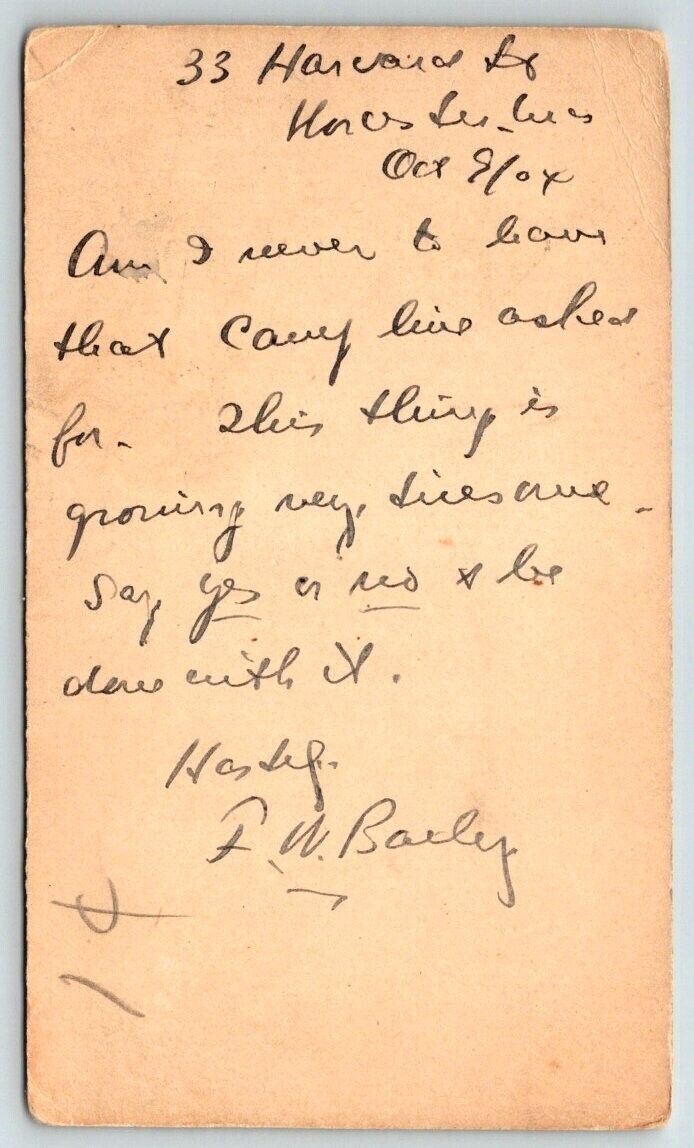 33 Harvard St
Worcester. Mass
Oct 9/04
Am I never to have
that Carey line asked
for. This thing is
growing very tiresome.
Say yes or no & be
done with it.
Hastily.
F. W. Bailey